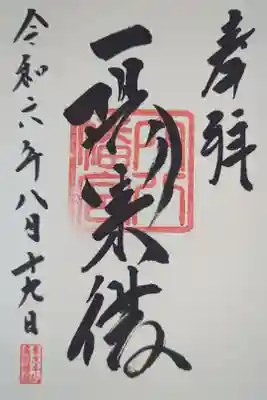 奉拝
一陽来復
令和六年八月十九日